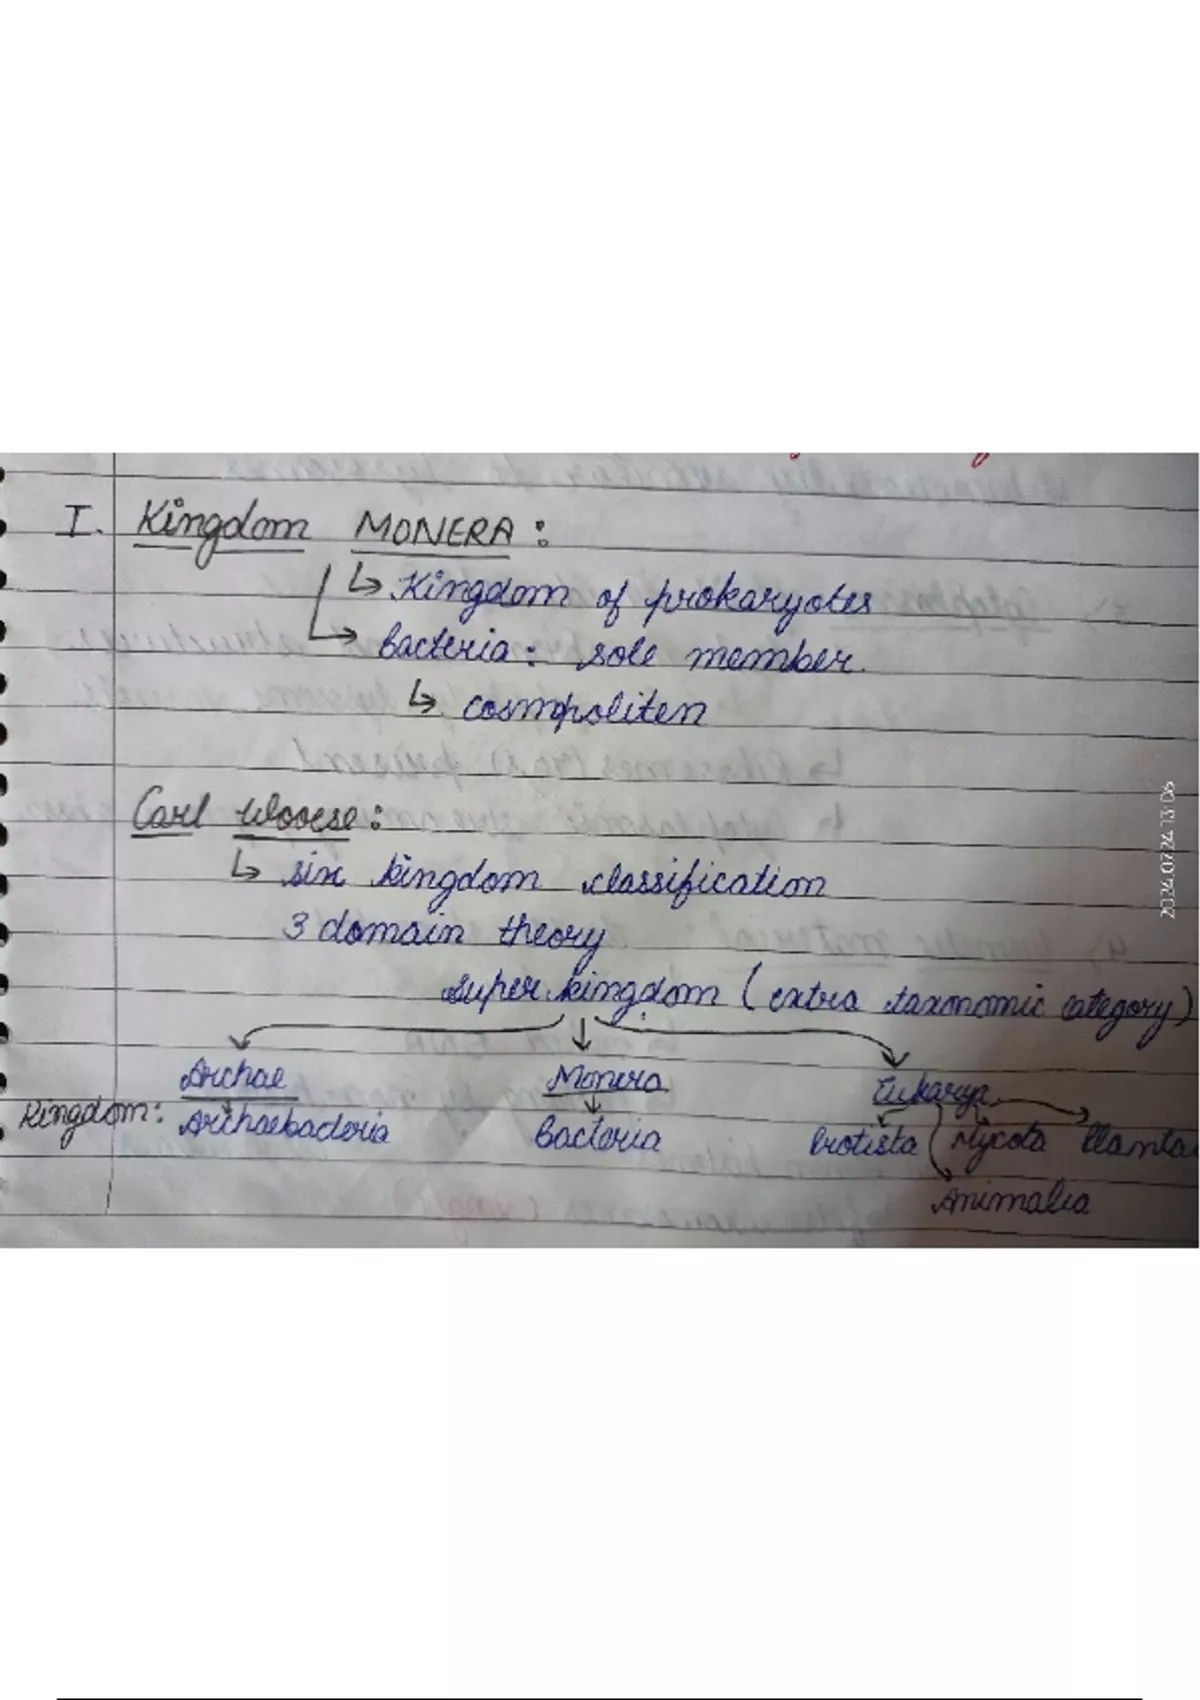 I. Kingdom MONERA :
↳ Kingdom of prokaryotes
→ bacteria : sole member.
↳ cosmpoliten
Carl Wooese :
↳ six kingdom classification
3 domain theory
super kingdom ( extra taxonomic category)
Archae Monera Eukarya
Kingdom: Archaebacteria Bacteria Protista Mycota Plantae
Animalia
2024.07.24 13:06